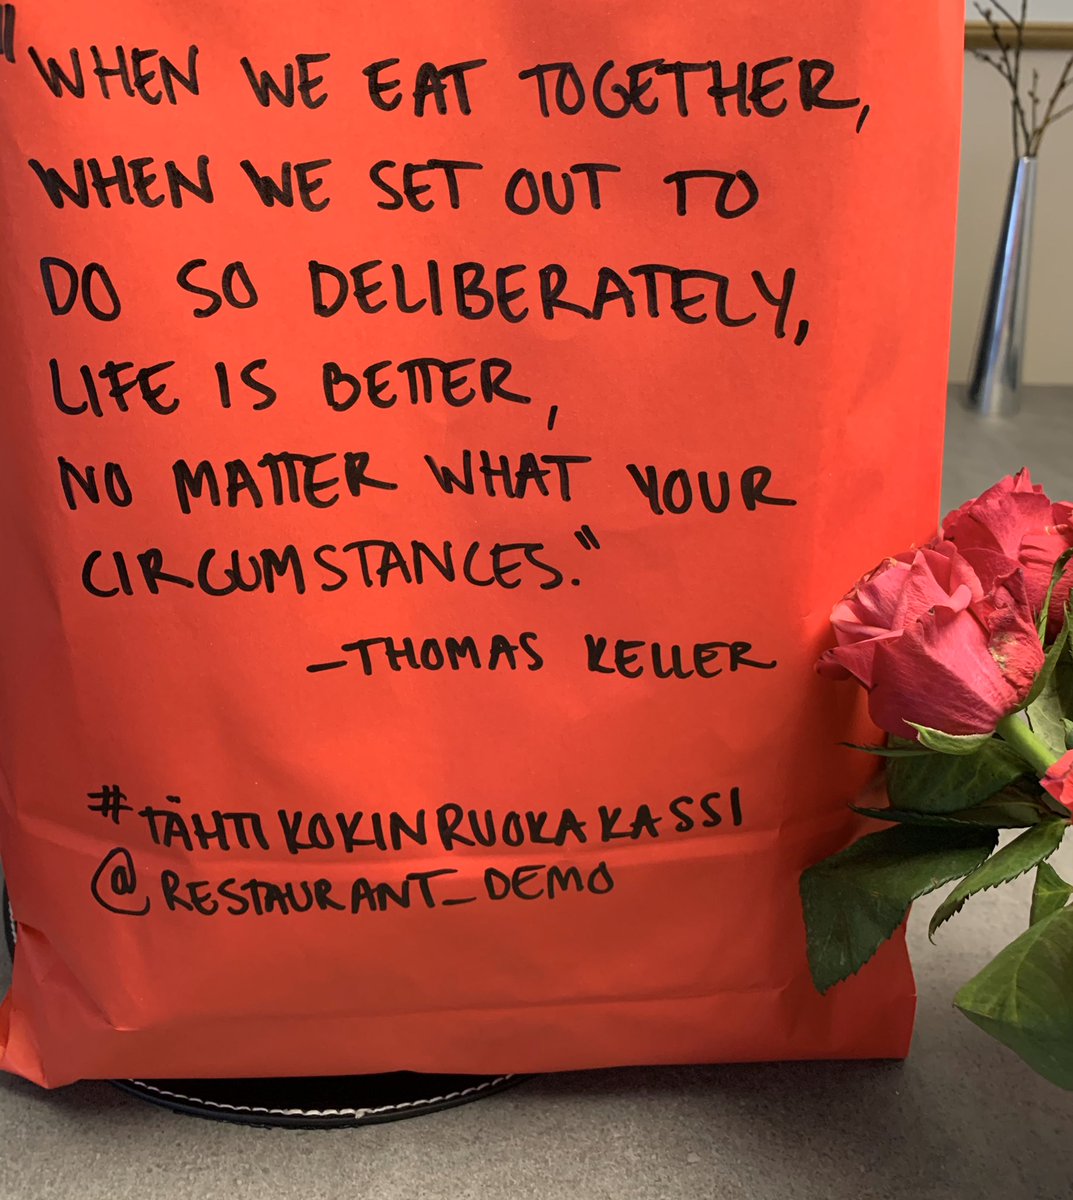 "WHEN WE EAT TOGETHER,
WHEN WE SET OUT TO
DO SO DELIBERATELY,
LIFE IS BETTER,
NO MATTER WHAT YOUR
CIRCUMSTANCES."
-THOMAS KELLER
#TÄHTIKOKINRUOKAKASSI
@RESTAURANT_DEMO